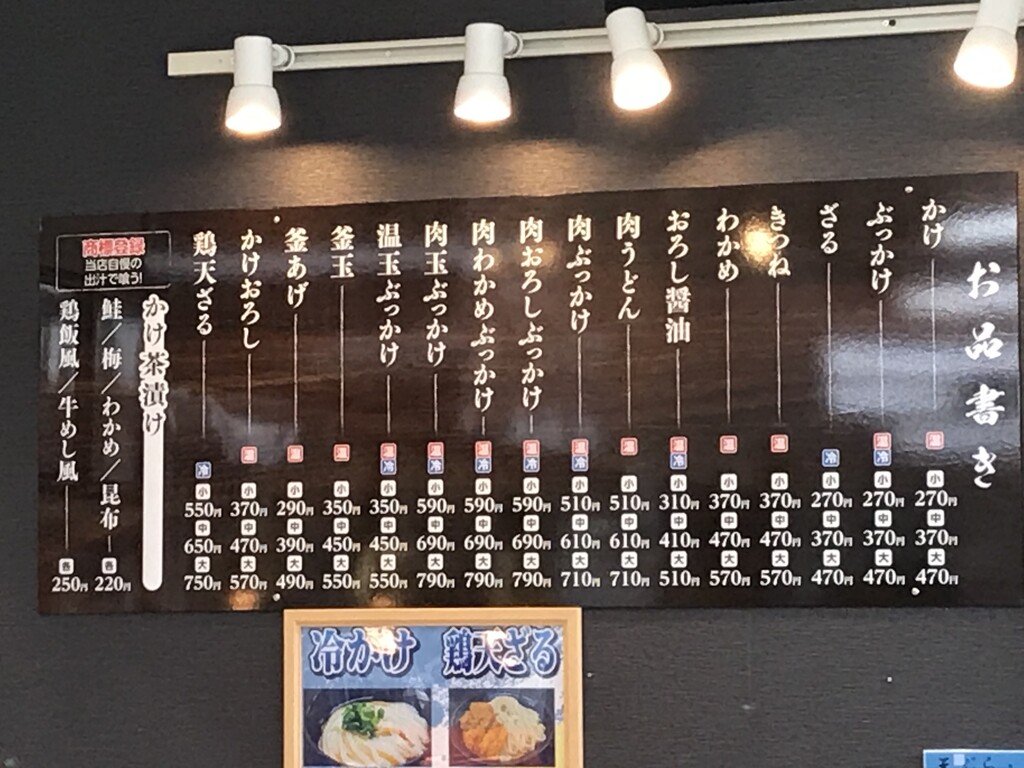 お品書き
かけ 温 小 270円 中 370円 大 470円
ぶっかけ 温 冷 小 270円 中 370円 大 470円
ざる 冷 小 270円 中 370円 大 470円
きつね 温 小 370円 中 470円 大 570円
わかめ 温 小 370円 中 470円 大 570円
おろし醤油 温 冷 小 310円 中 410円 大 510円
肉うどん 温 小 510円 中 610円 大 710円
肉ぶっかけ 温 冷 小 510円 中 610円 大 710円
肉おろしぶっかけ 温 冷 小 590円 中 690円 大 790円
肉わかめぶっかけ 温 冷 小 590円 中 690円 大 790円
肉玉ぶっかけ 温 冷 小 590円 中 690円 大 790円
温玉ぶっかけ 温 冷 小 350円 中 450円 大 550円
釜玉 温 小 350円 中 450円 大 550円
釜あげ 温 小 290円 中 390円 大 490円
かけおろし 温 小 370円 中 470円 大 570円
鶏天ざる 冷 小 550円 中 650円 大 750円
商標登録
当店自慢の
出汁で喰う!
かけ茶漬け
鮭/梅/わかめ/昆布 各 220円
鶏飯風/牛めし風 各 250円
冷かけ 鶏天ざる